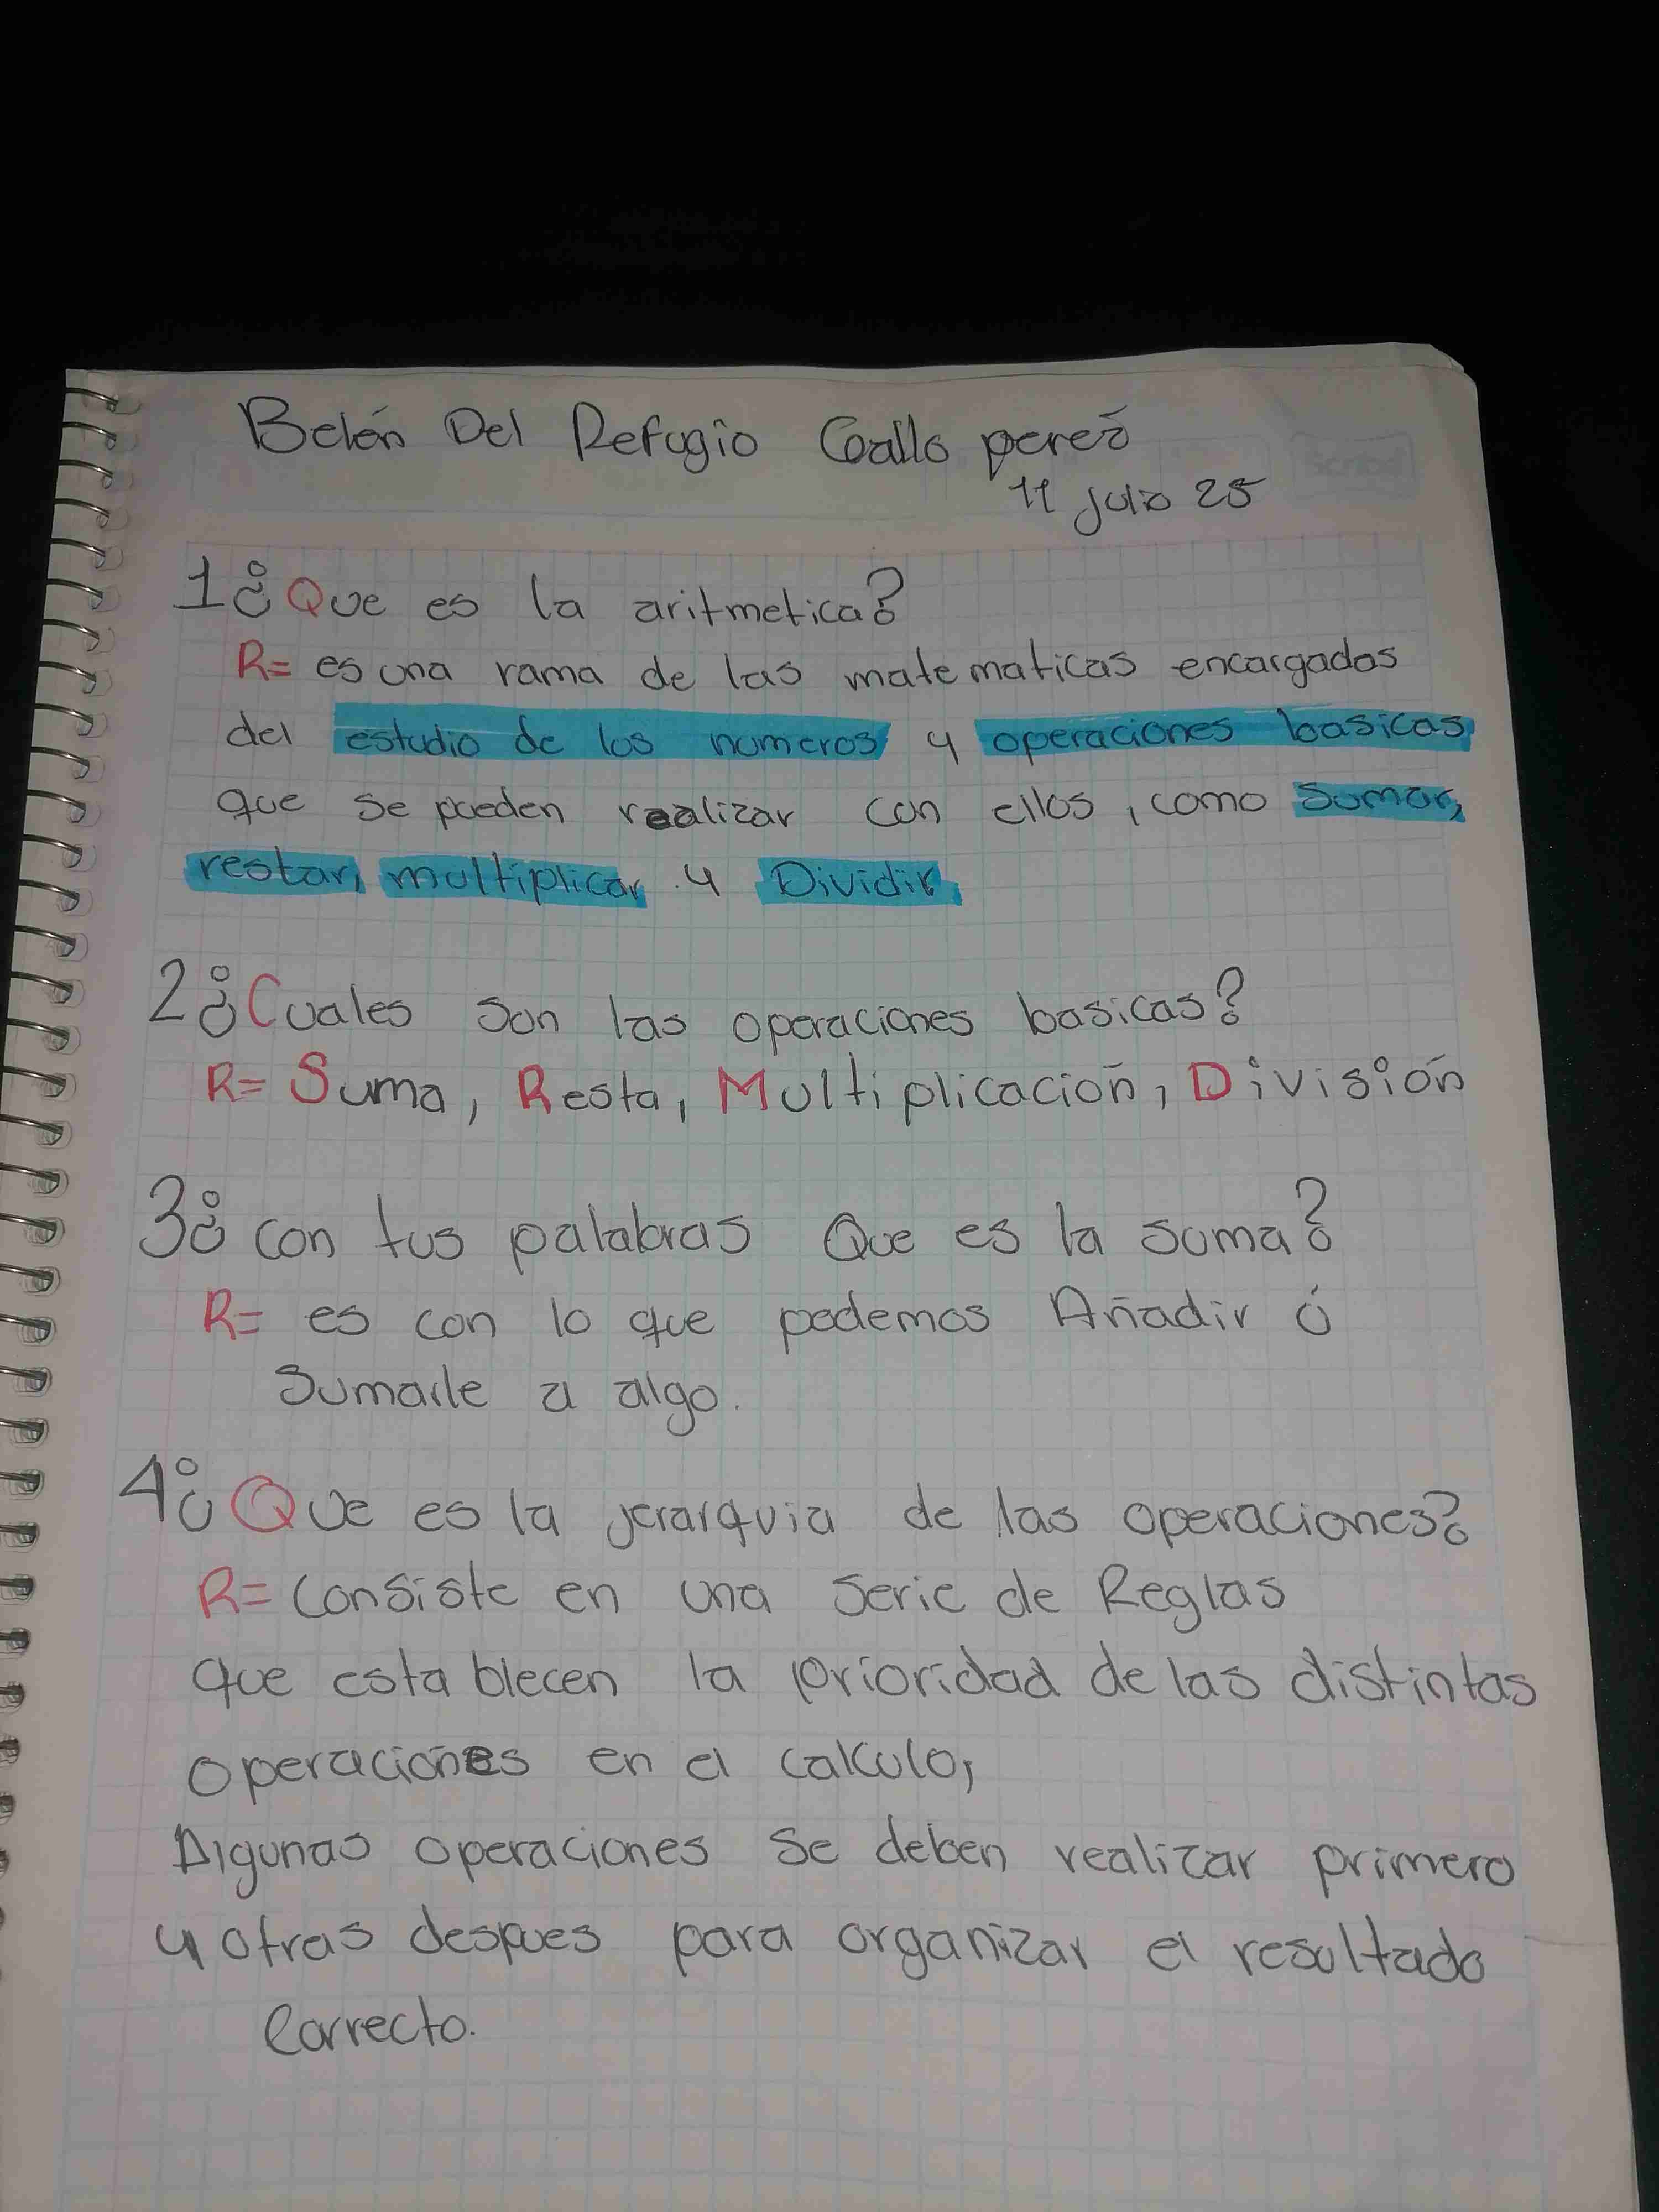 Belén Del Refugio Gallo perez
11 julio 25
Scribe
1¿Que es la aritmetica?
R= es una rama de las matematicas encargadas
del estudio de los numeros y operaciones basicas
que se pueden realizar con ellos, como sumar,
restar, multiplicar y Dividir
2¿Cuales son las operaciones basicas?
R= Suma, Resta, Multiplicación, División
3¿con tus palabras Que es la suma?
R= es con lo que podemos Añadir ó
Sumarle a algo.
4¿Que es la jerarquia de las operaciones?
R= Consiste en una serie de Reglas
que establecen la prioridad de las distintas
operaciones en el calculo,
Algunas operaciones se deben realizar primero
y otras despues para organizar el resultado
Correcto.